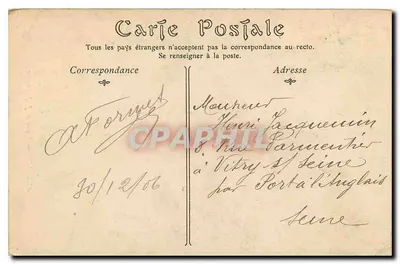 Carte Postale
Tous les pays étrangers n'acceptent pas la correspondance au recto.
Se renseigner à la poste.
Correspondance
Adresse
30/12/06
CPAPHIL
Monsieur
Henri Jacquemin
8 Rue Parmentier
à Vitry s/ Seine
par Port à l'Anglais
Seine